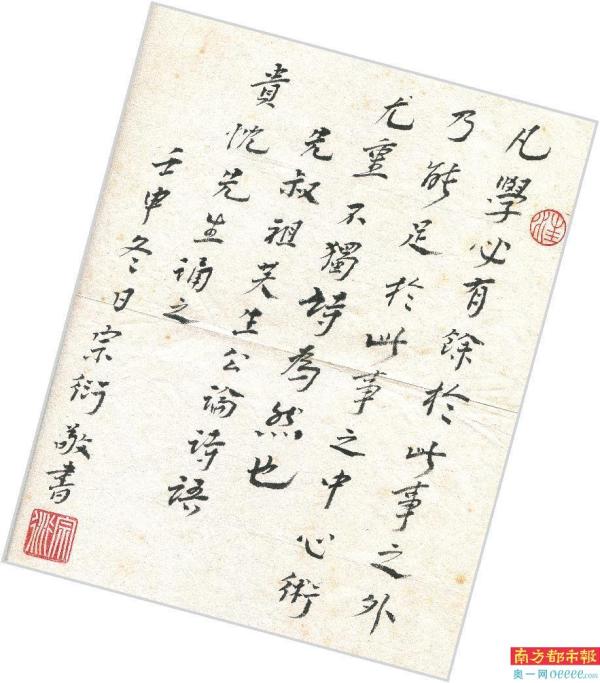 凡學必有餘於此事之外
乃能足於此事之中心術
尤重不獨詩為然也
先叔祖芙生公論詩語
貴忱先生誦之
壬申冬日宗衍敬書
汪
宗衍
南方都市報
奥一网oeeee.com